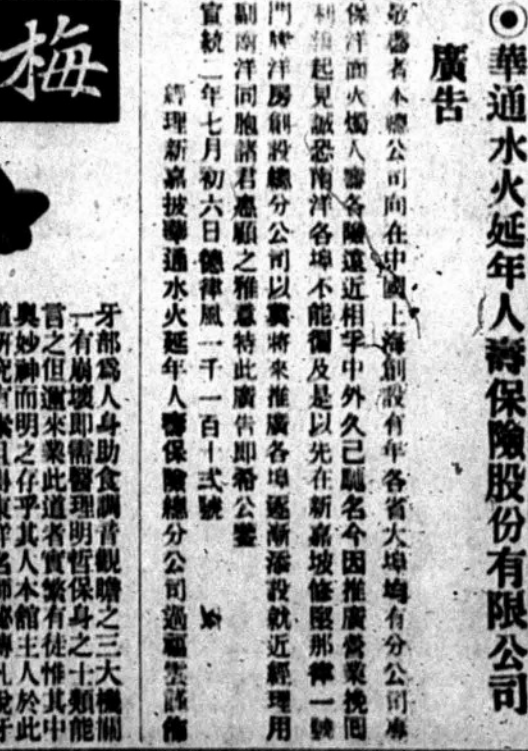 ◉華通水火延年人壽保險股份有限公司
廣告
敬啓者本總公司向在中國上海創設有年各省大埠均有分公司專
保洋面火燭人壽各險遠近相孚中外久已馳名今因推廣營業挽回
利權起見誠恐南洋各埠不能徧及是以先在新嘉坡律一號
門牌洋房創設總分公司以冀將來推廣各埠逐漸添設就近經理用
副南洋同胞諸君惠顧之雅意特此廣告即希公鑒
宣統二年七月初六日德律風一千一百十弍號
經理新嘉披華通水火延年人壽保險總分公司過福雲謹佈
梅
牙部爲人身助食調音觀瞻之三大機關
一有崩壞即需醫理明哲保身之士類能
言之但邇來業此道者實繁有徒惟其中
奧妙神而明之存乎其人本館主人於此